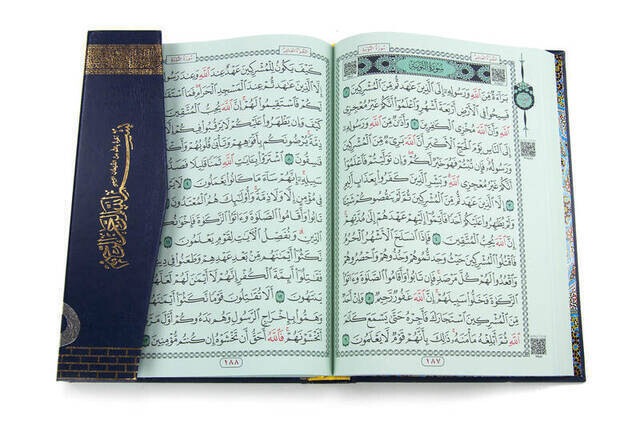 سُورَةُ التَّوْبَةِ
سُورَةُ التَّوْبَةِ
بَرَاءَةٌ مِنَ اللَّهِ وَرَسُولِهِ إِلَى الَّذِينَ عَاهَدْتُمْ مِنَ الْمُشْرِكِينَ ١
فَسِيحُوا فِي الْأَرْضِ أَرْبَعَةَ أَشْهُرٍ وَاعْلَمُوا أَنَّكُمْ غَيْرُ مُعْجِزِي
اللَّهِ وَأَنَّ اللَّهَ مُخْزِي الْكَافِرِينَ ٢ وَأَذَانٌ مِنَ اللَّهِ وَرَسُولِهِ
إِلَى النَّاسِ يَوْمَ الْحَجِّ الْأَكْبَرِ أَنَّ اللَّهَ بَرِيءٌ مِنَ الْمُشْرِكِينَ
وَرَسُولُهُ فَإِنْ تُبْتُمْ فَهُوَ خَيْرٌ لَكُمْ وَإِنْ تَوَلَّيْتُمْ فَاعْلَمُوا
أَنَّكُمْ غَيْرُ مُعْجِزِي اللَّهِ وَبَشِّرِ الَّذِينَ كَفَرُوا بِعَذَابٍ أَلِيمٍ ٣
إِلَّا الَّذِينَ عَاهَدْتُمْ مِنَ الْمُشْرِكِينَ ثُمَّ لَمْ يَنْقُصُوكُمْ شَيْئًا
وَلَمْ يُظَاهِرُوا عَلَيْكُمْ أَحَدًا فَأَتِمُّوا إِلَيْهِمْ عَهْدَهُمْ إِلَى مُدَّتِهِمْ
إِنَّ اللَّهَ يُحِبُّ الْمُتَّقِينَ ٤ فَإِذَا انْسَلَخَ الْأَشْهُرُ الْحُرُمُ
فَاقْتُلُوا الْمُشْرِكِينَ حَيْثُ وَجَدْتُمُوهُمْ وَخُذُوهُمْ وَاحْصُرُوهُمْ
وَاقْعُدُوا لَهُمْ كُلَّ مَرْصَدٍ فَإِنْ تَابُوا وَأَقَامُوا الصَّلَاةَ وَآتَوُا
الزَّكَاةَ فَخَلُّوا سَبِيلَهُمْ إِنَّ اللَّهَ غَفُورٌ رَحِيمٌ ٥ وَإِنْ أَحَدٌ
مِنَ الْمُشْرِكِينَ اسْتَجَارَكَ فَأَجِرْهُ حَتَّى يَسْمَعَ كَلَامَ
اللَّهِ ثُمَّ أَبْلِغْهُ مَأْمَنَهُ ذَلِكَ بِأَنَّهُمْ قَوْمٌ لَا يَعْلَمُونَ ٦
١٨٧
سُورَةُ التَّوْبَةِ
كَيْفَ يَكُونُ لِلْمُشْرِكِينَ عَهْدٌ عِنْدَ اللَّهِ وَعِنْدَ رَسُولِهِ
إِلَّا الَّذِينَ عَاهَدْتُمْ عِنْدَ الْمَسْجِدِ الْحَرَامِ فَمَا اسْتَقَامُوا
لَكُمْ فَاسْتَقِيمُوا لَهُمْ إِنَّ اللَّهَ يُحِبُّ الْمُتَّقِينَ ٧
كَيْفَ وَإِنْ يَظْهَرُوا عَلَيْكُمْ لَا يَرْقُبُوا فِيكُمْ إِلًّا وَلَا
ذِمَّةً يُرْضُونَكُمْ بِأَفْوَاهِهِمْ وَتَأْبَى قُلُوبُهُمْ وَأَكْثَرُهُمْ
فَاسِقُونَ ٨ اشْتَرَوْا بِآيَاتِ اللَّهِ ثَمَنًا قَلِيلًا فَصَدُّوا عَنْ
سَبِيلِهِ إِنَّهُمْ سَاءَ مَا كَانُوا يَعْمَلُونَ ٩ لَا يَرْقُبُونَ
فِي مُؤْمِنٍ إِلًّا وَلَا ذِمَّةً وَأُولَئِكَ هُمُ الْمُعْتَدُونَ ١٠ فَإِنْ
تَابُوا وَأَقَامُوا الصَّلَاةَ وَآتَوُا الزَّكَاةَ فَإِخْوَانُكُمْ فِي
الدِّينِ وَنُفَصِّلُ الْآيَاتِ لِقَوْمٍ يَعْلَمُونَ
فَقَاتِلُوا أَئِمَّةَ الْكُفْرِ إِنَّهُمْ لَا أَيْمَانَ لَهُمْ لَعَلَّهُمْ
يَنْتَهُونَ ١٢ أَلَا تُقَاتِلُونَ قَوْمًا نَكَثُوا أَيْمَانَهُمْ
وَهَمُّوا بِإِخْرَاجِ الرَّسُولِ وَهُمْ بَدَءُوكُمْ أَوَّلَ
أَتَخْشَوْنَهُمْ فَاللَّهُ أَحَقُّ أَنْ تَخْشَوْهُ إِنْ كُنْتُمْ مُؤْمِنِينَ
١٨٨
بسم الله الرحمن الرحيم